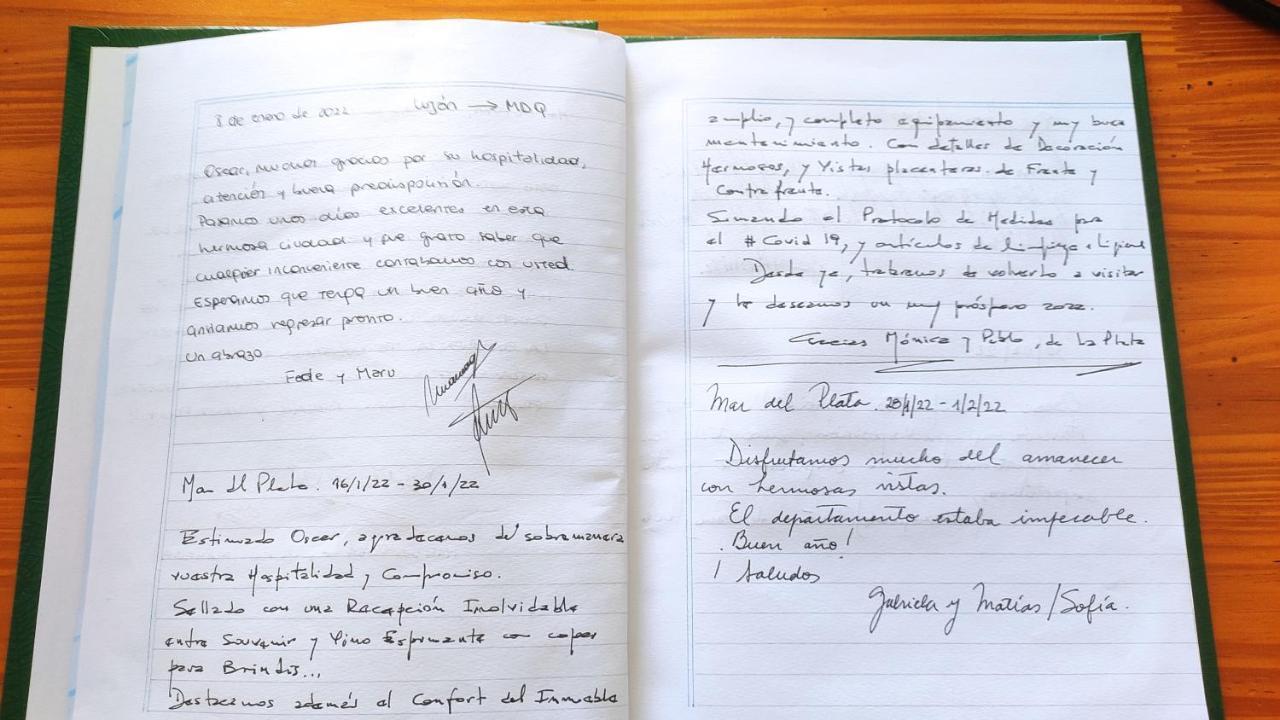 8 de enero de 2022 Luján → MDQ
Oscar, muchas gracias por su hospitalidad,
atención y buena predisposición.
Pasamos unos días excelentes en esta
hermosa ciudad y fue grato saber que
cualquier inconveniente contabamos con usted.
Esperamos que tenga un buen año y
ansiamos regresar pronto.
un abrazo
Fede y Maru
Mar del Plata. 16/1/22 - 30/1/22
Estimado Oscar, agradecemos de sobremanera
vuestra Hospitalidad y Compromiso.
Sellado con una Recepción Inolvidable
entre Souvenir y Vino Espumante con copas
para Brindis...
Destacamos además el Confort del Inmueble
amplio, y completo equipamiento y muy buen
mantenimiento. Con detalles de Decoración
Hermosos, y Vistas placenteras de Frente y
Contrafrente.
Sumando el Protocolo de Medidas por
el #Covid 19, y artículos de limpieza e Higiene
Desde ya, trataremos de volverlo a visitar
y le deseamos un muy próspero 2022.
Gracias Mónica y Pablo, de La Plata
Mar del Plata. /22 - 1/2/22
Disfrutamos mucho del amanecer
con hermosas vistas.
El departamento estaba impecable.
. Buen año!
! Saludos
Gabriela y Matías/Sofía.